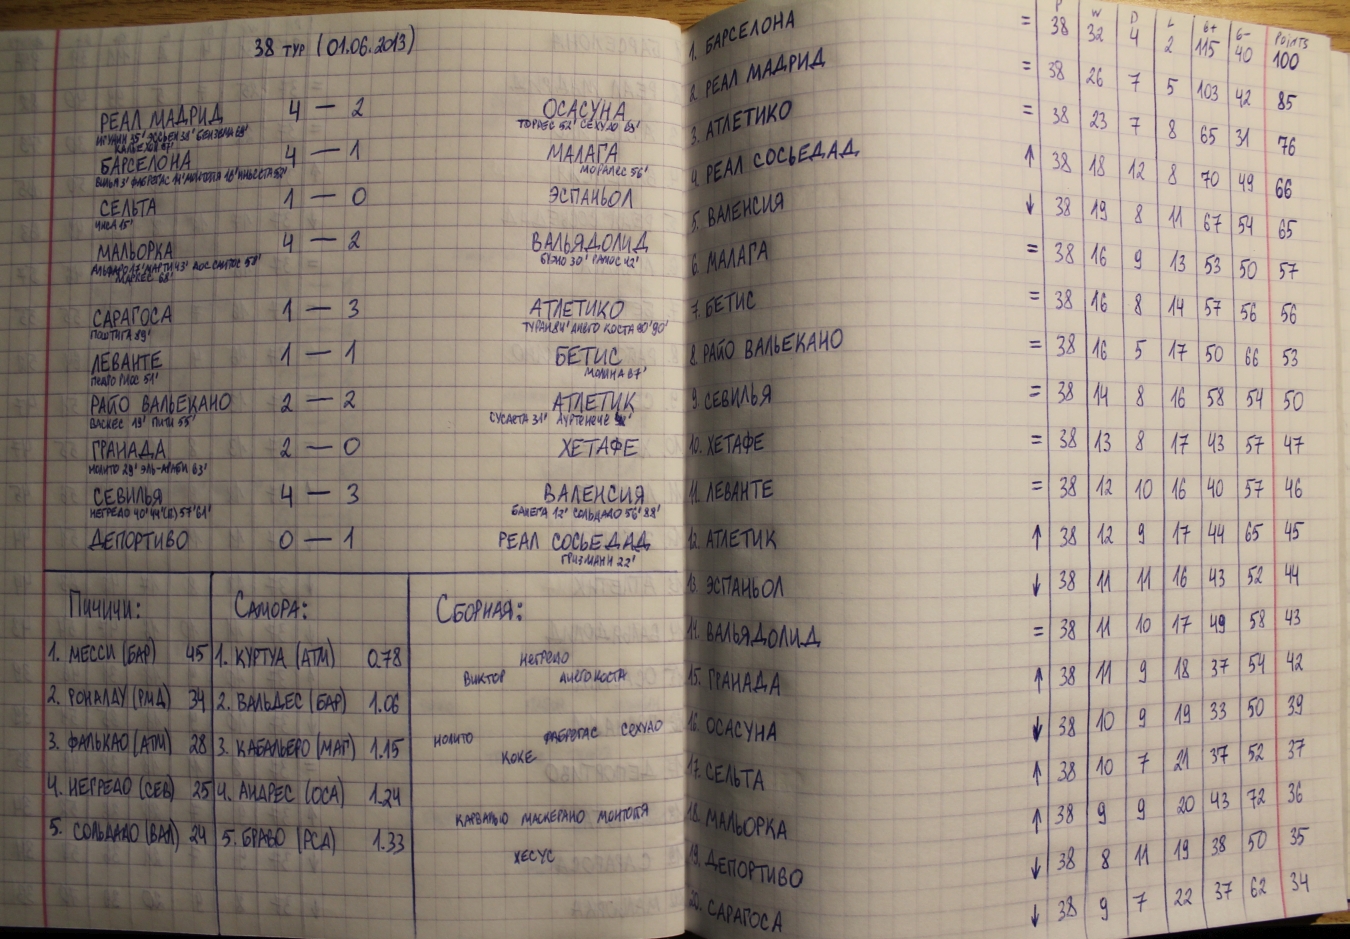 38 ТУР (01.06.2013)
РЕАЛ МАДРИД 4 — 2 ОСАСУНА
ИГУАИН 35' ЭССЬЕН 38' БЕНЗЕМА 69' ТОРРЕС 52' СЕХУДО 63'
КАЛЬЕХОН 87'
БАРСЕЛОНА 4 — 1 МАЛАГА
ВИЛЬЯ 3' ФАБРЕГАС 14' МОНТОЙЯ 16' ИНЬЕСТА 52' МОРАЛЕС 56'
СЕЛЬТА 1 — 0 ЭСПАНЬОЛ
15'
МАЛЬОРКА 4 — 2 ВАЛЬЯДОЛИД
АЛЬФАРО 17' МАРТИ 43' ДОС САНТОС 50' БУЭНО 30' РАМОС 42'
МАРКЕС 68'
САРАГОСА 1 — 3 АТЛЕТИКО
ПОШТИГА 89' ТУРАН 84' ДИЕГО КОСТА 90' 90'
ЛЕВАНТЕ 1 — 1 БЕТИС
ПЕДРО РИОС 51' МОЛИНА 67'
РАЙО ВАЛЬЕКАНО 2 — 2 АТЛЕТИК
ВАСКЕС 19' ПИТИ 55' СУСАЕТА 31' АУРТЕНЕЧЕ
ГРАНАДА 2 — 0 ХЕТАФЕ
НОЛИТО 29' ЭЛЬ-АРАБИ 63'
СЕВИЛЬЯ 4 — 3 ВАЛЕНСИЯ
НЕГРЕДО 40' 44'(П) 57' 61' БАНЕГА 12' СОЛЬДАДО 56' 88'
ДЕПОРТИВО 0 — 1 РЕАЛ СОСЬЕДАД
ГРИЗМАНН 22'
ПИЧИЧИ:
1. МЕССИ (БАР) 45
2. РОНАЛДУ (РМД) 34
3. ФАЛЬКАО (АТМ) 28
4. НЕГРЕДО (СЕВ) 25
5. СОЛЬДАДО (ВАЛ) 24
САМОРА:
1. КУРТУА (АТМ) 0.78
2. ВАЛЬДЕС (БАР) 1.06
3. КАБАЛЬЕРО (МАГ) 1.15
4. АНДРЕС (ОСА) 1.24
5. БРАВО (РСД) 1.33
СБОРНАЯ:
НЕГРЕДО
ВИКТОР ДИЕГО КОСТА
НОЛИТО ФАБРЕГАС СЕХУДО
КОКЕ
КАРВАЛЬЮ МАСКЕРАНО МОНТОЙЯ
ХЕСУС
P W D L G+ G- POINTS
1. БАРСЕЛОНА = 38 32 4 2 115 40 100
2. РЕАЛ МАДРИД = 38 26 7 5 103 42 85
3. АТЛЕТИКО = 38 23 7 8 65 31 76
4. РЕАЛ СОСЬЕДАД ↑ 38 18 12 8 70 49 66
5. ВАЛЕНСИЯ ↓ 38 19 8 11 67 54 65
6. МАЛАГА = 38 16 9 13 53 50 57
7. БЕТИС = 38 16 8 14 57 56 56
8. РАЙО ВАЛЬЕКАНО = 38 16 5 17 50 66 53
9. СЕВИЛЬЯ = 38 14 8 16 58 54 50
10. ХЕТАФЕ = 38 13 8 17 43 57 47
11. ЛЕВАНТЕ = 38 12 10 16 40 57 46
12. АТЛЕТИК ↑ 38 12 9 17 44 65 45
13. ЭСПАНЬОЛ ↓ 38 11 11 16 43 52 44
14. ВАЛЬЯДОЛИД = 38 11 10 17 49 58 43
15. ГРАНАДА ↑ 38 11 9 18 37 54 42
16. ОСАСУНА ↓ 38 10 9 19 33 50 39
17. СЕЛЬТА ↑ 38 10 7 21 37 52 37
18. МАЛЬОРКА ↑ 38 9 9 20 43 72 36
19. ДЕПОРТИВО ↓ 38 8 11 19 38 50 35
20. САРАГОСА ↓ 38 9 7 22 37 62 34